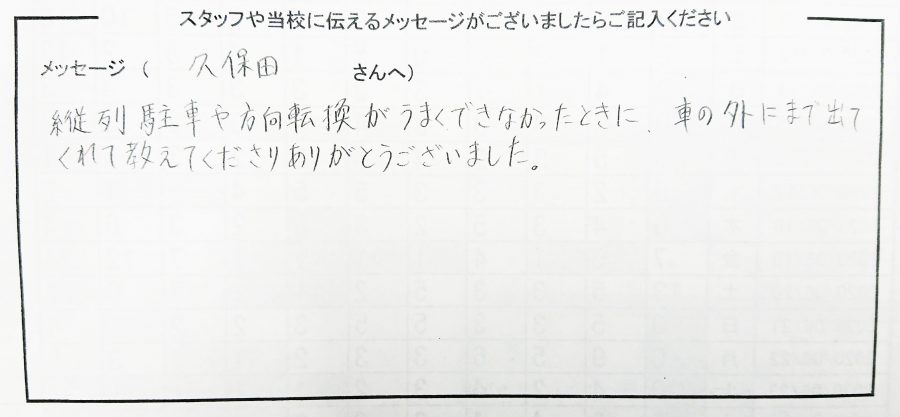 スタッフや当校に伝えるメッセージがございましたらご記入ください
メッセージ ( 久保田 さんへ)
縦列駐車や方向転換がうまくできなかったときに、車の外にまで出て
くれて教えてくださりありがとうございました。